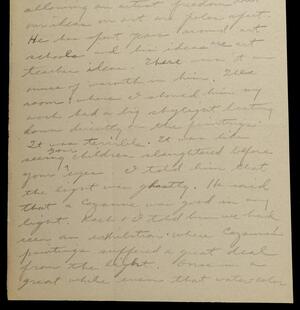 allowing an artist freedom
our ideas on art are poles apart.
He has spent years around art
schools and his ideas are art
teacher ideas. There wasn't an
ounce of warmth in him. The
room where I showed him my
work had a big skylight beating
down directly on the paintings.
It was terrible. It was like
seeing children slaughtered before
your eyes. I told him that
the light was ghastly. He said
that a Cezanne was good in any
light. I told him we had
seen an exhibition where Cezanne's
paintings suffered a great deal
from the light. Once in a
great while even that watercolor